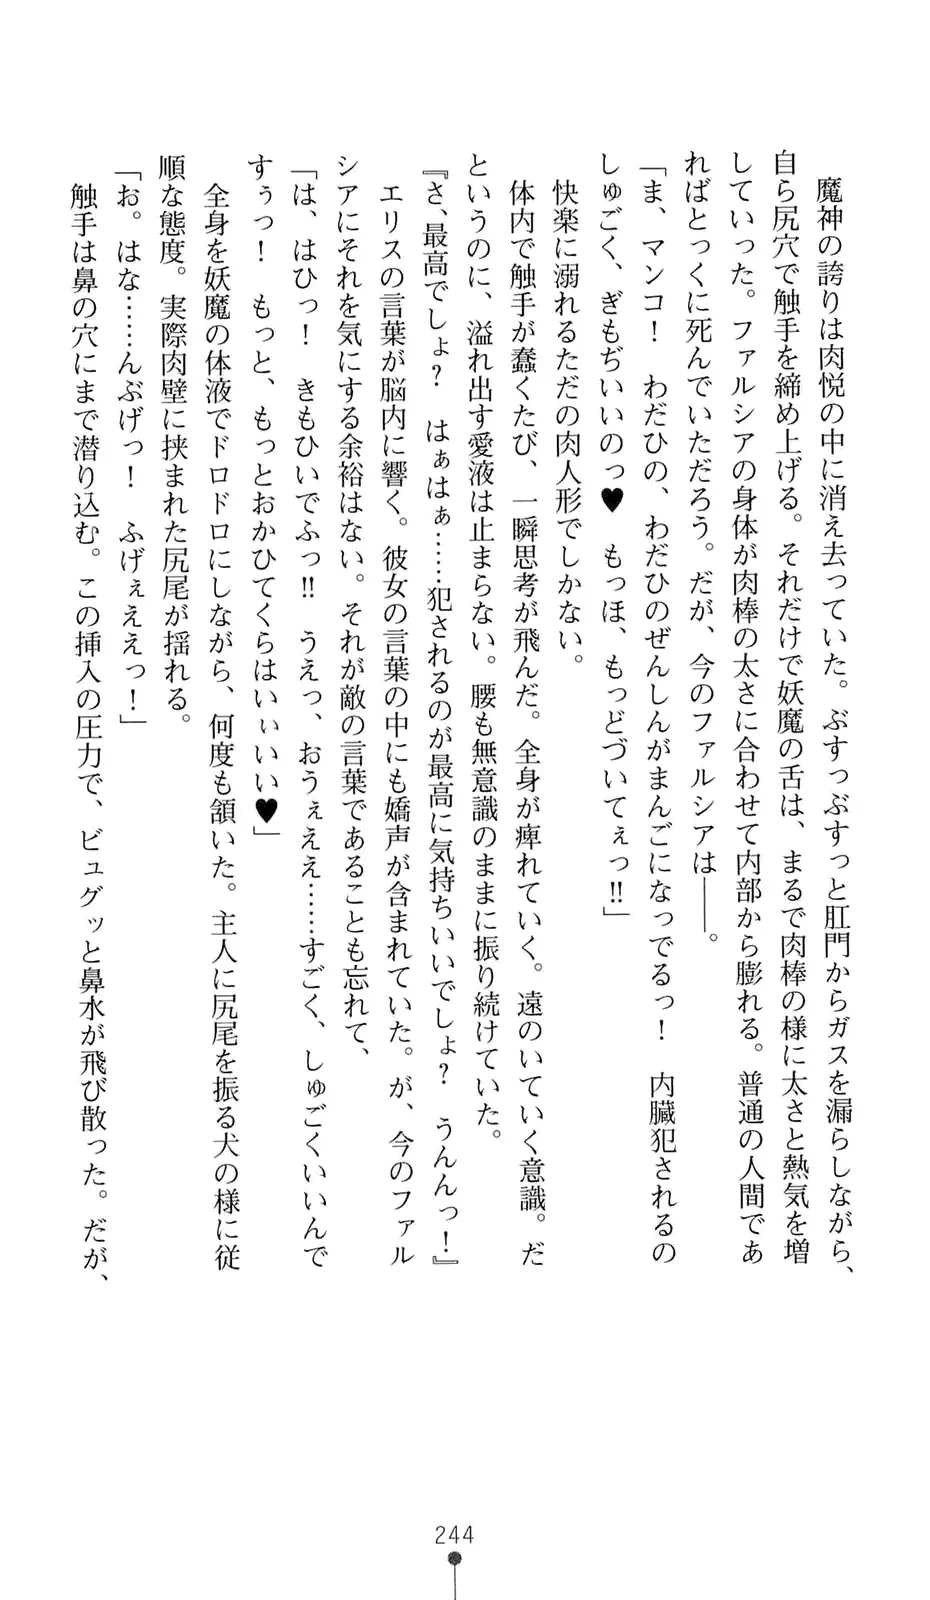 魔神の誇りは肉悦の中に消え去っていた。ぶすっぶすっと肛門からガスを漏らしながら、
自ら尻穴で触手を締め上げる。それだけで妖魔の舌は、まるで肉棒の様に太さと熱気を増
していった。ファルシアの身体が肉棒の太さに合わせて内部から膨れる。普通の人間であ
ればとっくに死んでいただろう。だが、今のファルシアは――。
「ま、マンコ！　わだひの、わだひのぜんしんがまんごになっでるっ！　内臓犯されるの
しゅごく、ぎもぢいいのっ♥　もっほ、もっどづいてぇっ!!」
快楽に溺れるただの肉人形でしかない。
体内で触手が蠢くたび、一瞬思考が飛んだ。全身が痺れていく。遠のいていく意識。だ
というのに、溢れ出す愛液は止まらない。腰も無意識のままに振り続けていた。
『さ、最高でしょ？　はぁはぁ……犯されるのが最高に気持ちいいでしょ？　うんんっ！』
エリスの言葉が脳内に響く。彼女の言葉の中にも嬌声が含まれていた。が、今のファル
シアにそれを気にする余裕はない。それが敵の言葉であることも忘れて、
「は、はひっ！　きもひいでふっ!!　うえっ、おうぇええ……すごく、しゅごくいいんで
すぅっ！　もっと、もっとおかひてくらはいぃいい♥」
全身を妖魔の体液でドロドロにしながら、何度も頷いた。主人に尻尾を振る犬の様に従
順な態度。実際肉壁に挟まれた尻尾が揺れる。
「お。はな……んぶげっ！　ふげぇええっ！」
触手は鼻の穴にまで潜り込む。この挿入の圧力で、ビュグッと鼻水が飛び散った。だが、
244